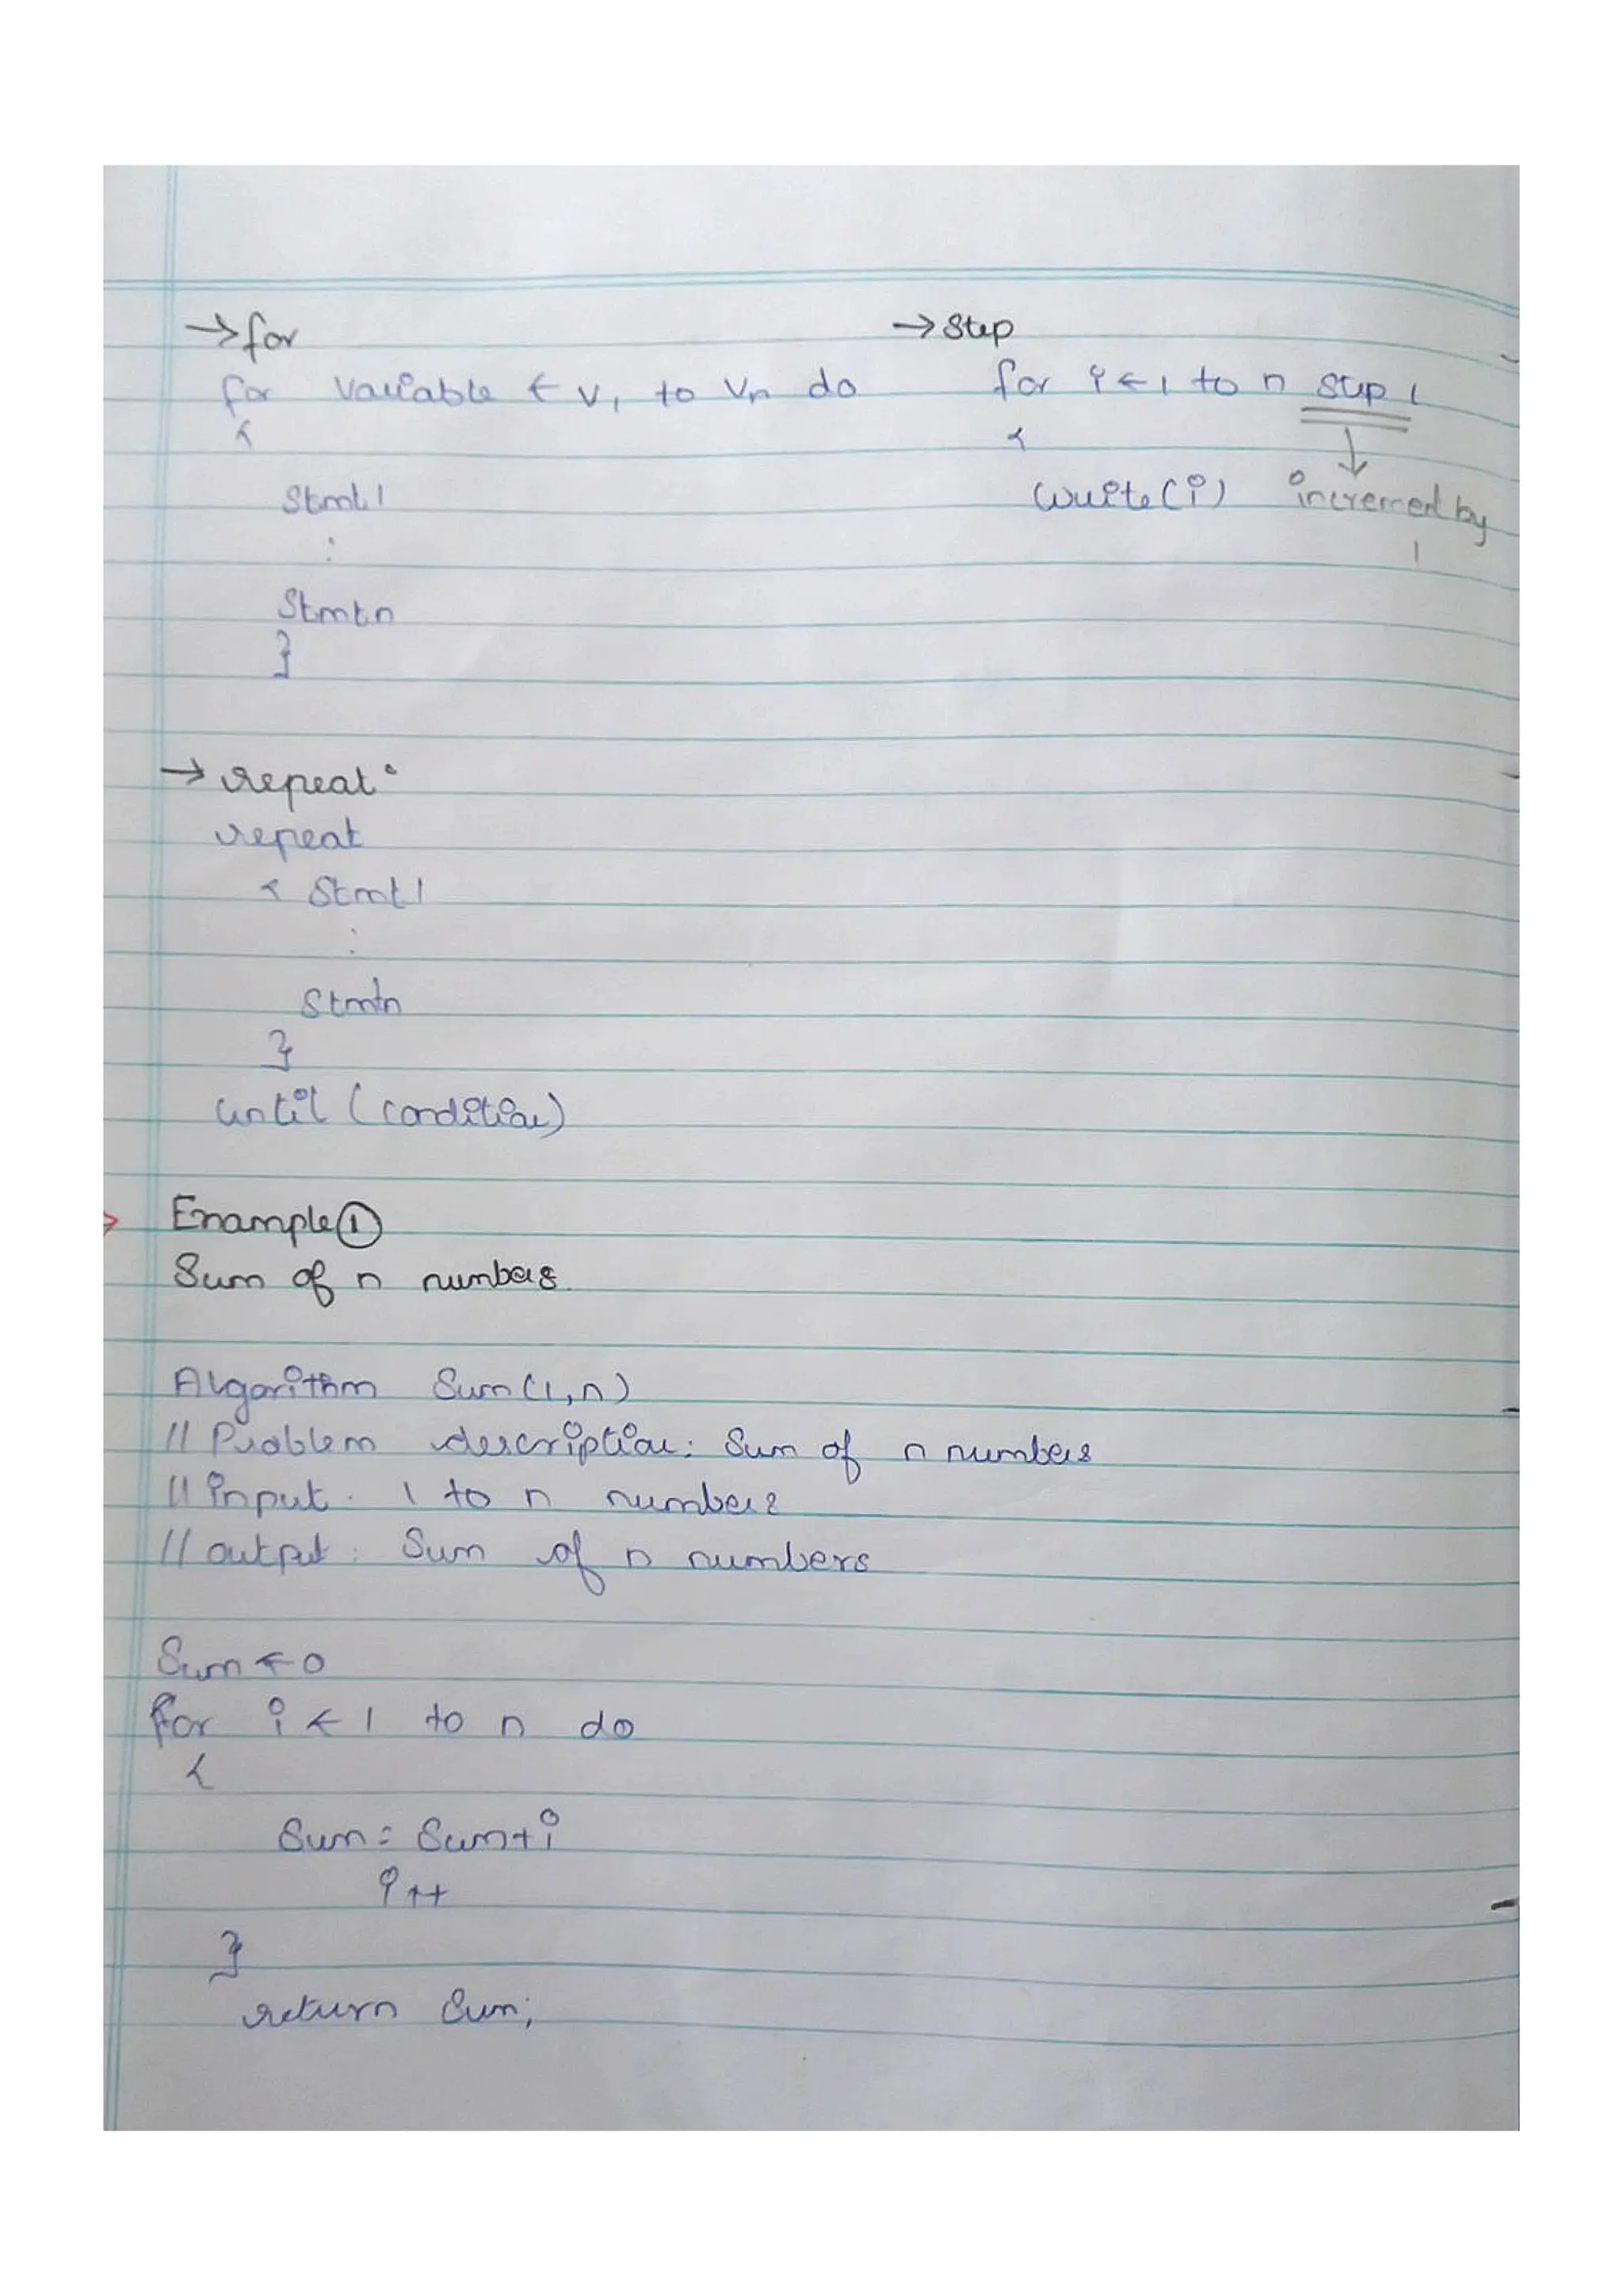 → for
for variable ← v1 to vn do
{
Stmt1
:
Stmtn
}
→ Step
for i ← 1 to n step 1
{
↓
write(i) increment by
1
→ repeat:
repeat
{ Stmt1
:
Stmtn
}
until (condition)
Example ①
Sum of n numbers.
Algorithm Sum(1,n)
// Problem description: Sum of n numbers
// input: 1 to n numbers
// output: Sum of n numbers
Sum ← 0
for i ← 1 to n do
{
Sum = Sum+i
i++
}
return Sum;